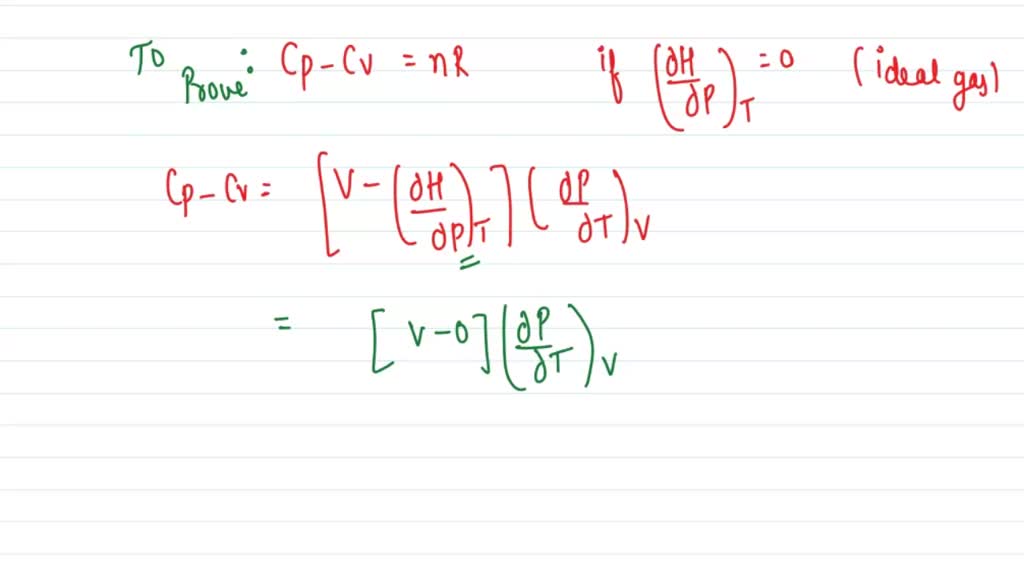 To Prove: Cp - Cv = nR if (∂H/∂P)_T = 0 (ideal gas)
Cp - Cv = [V - (∂H/∂P)_T] (∂P/∂T)_V
= [V - 0] (∂P/∂T)_V